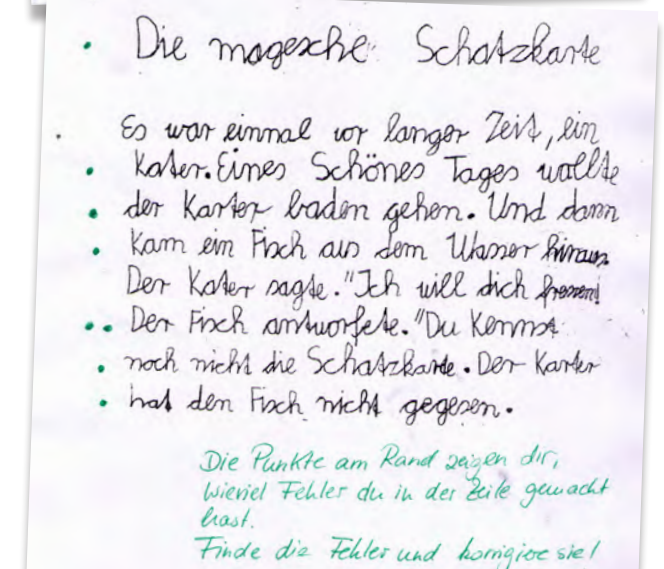 Die magesche Schatzkarte
Es war einmal vor langer Zeit, ein
Kater. Eines Schönes Tages wollte
der Karter baden gehen. Und dann
Kam ein Fisch aus dem Wasser hinaus
Der Kater sagte. "Ich will dich fressen!
Der Fisch antwortete. "Du Kennst
noch nicht die Schatzkarte. Der Karter
hat den Fisch nicht gegesen.
Die Punkte am Rand zeigen dir,
wieviel Fehler du in der Zeile gemacht
hast.
Finde die Fehler und korrigiere sie!